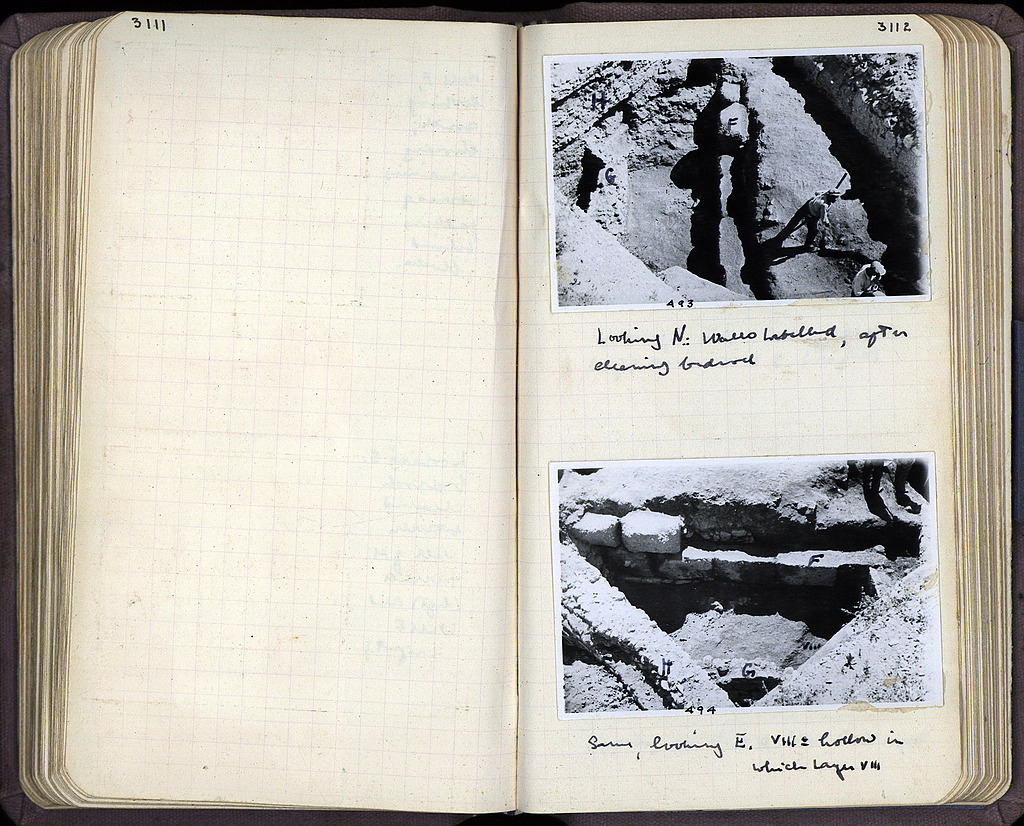 3111
3112
H
F
G
493
Looking N: Walls labelled, after
cleaning bedrock
F
H
G
VIII
494
Same, looking E. VIII = hollow in
which Layer VIII